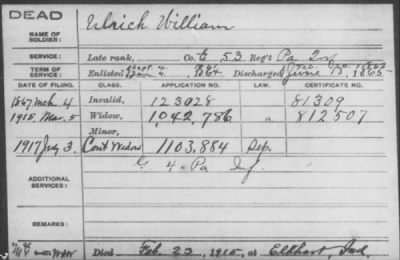 DEAD
Ulrich William
NAME OF SOLDIER:
SERVICE: Late rank, Co. G 53 Reg't Pa Inf
TERM OF SERVICE: Enlisted Sept. 4 1864 Discharged June 13, 1865
DATE OF FILING. CLASS. APPLICATION NO. LAW. CERTIFICATE NO.
1867 Mch. 4 Invalid, 123028 81309
1915, Mar. 5 Widow, 1,042,786 " 812507
Minor,
1917 July 3. Cont Widow 1103.884 Rep.
ADDITIONAL SERVICES: G. 4 Pa Inf.
REMARKS:
Died Feb. 23, 1915, at Elkhart, Ind.